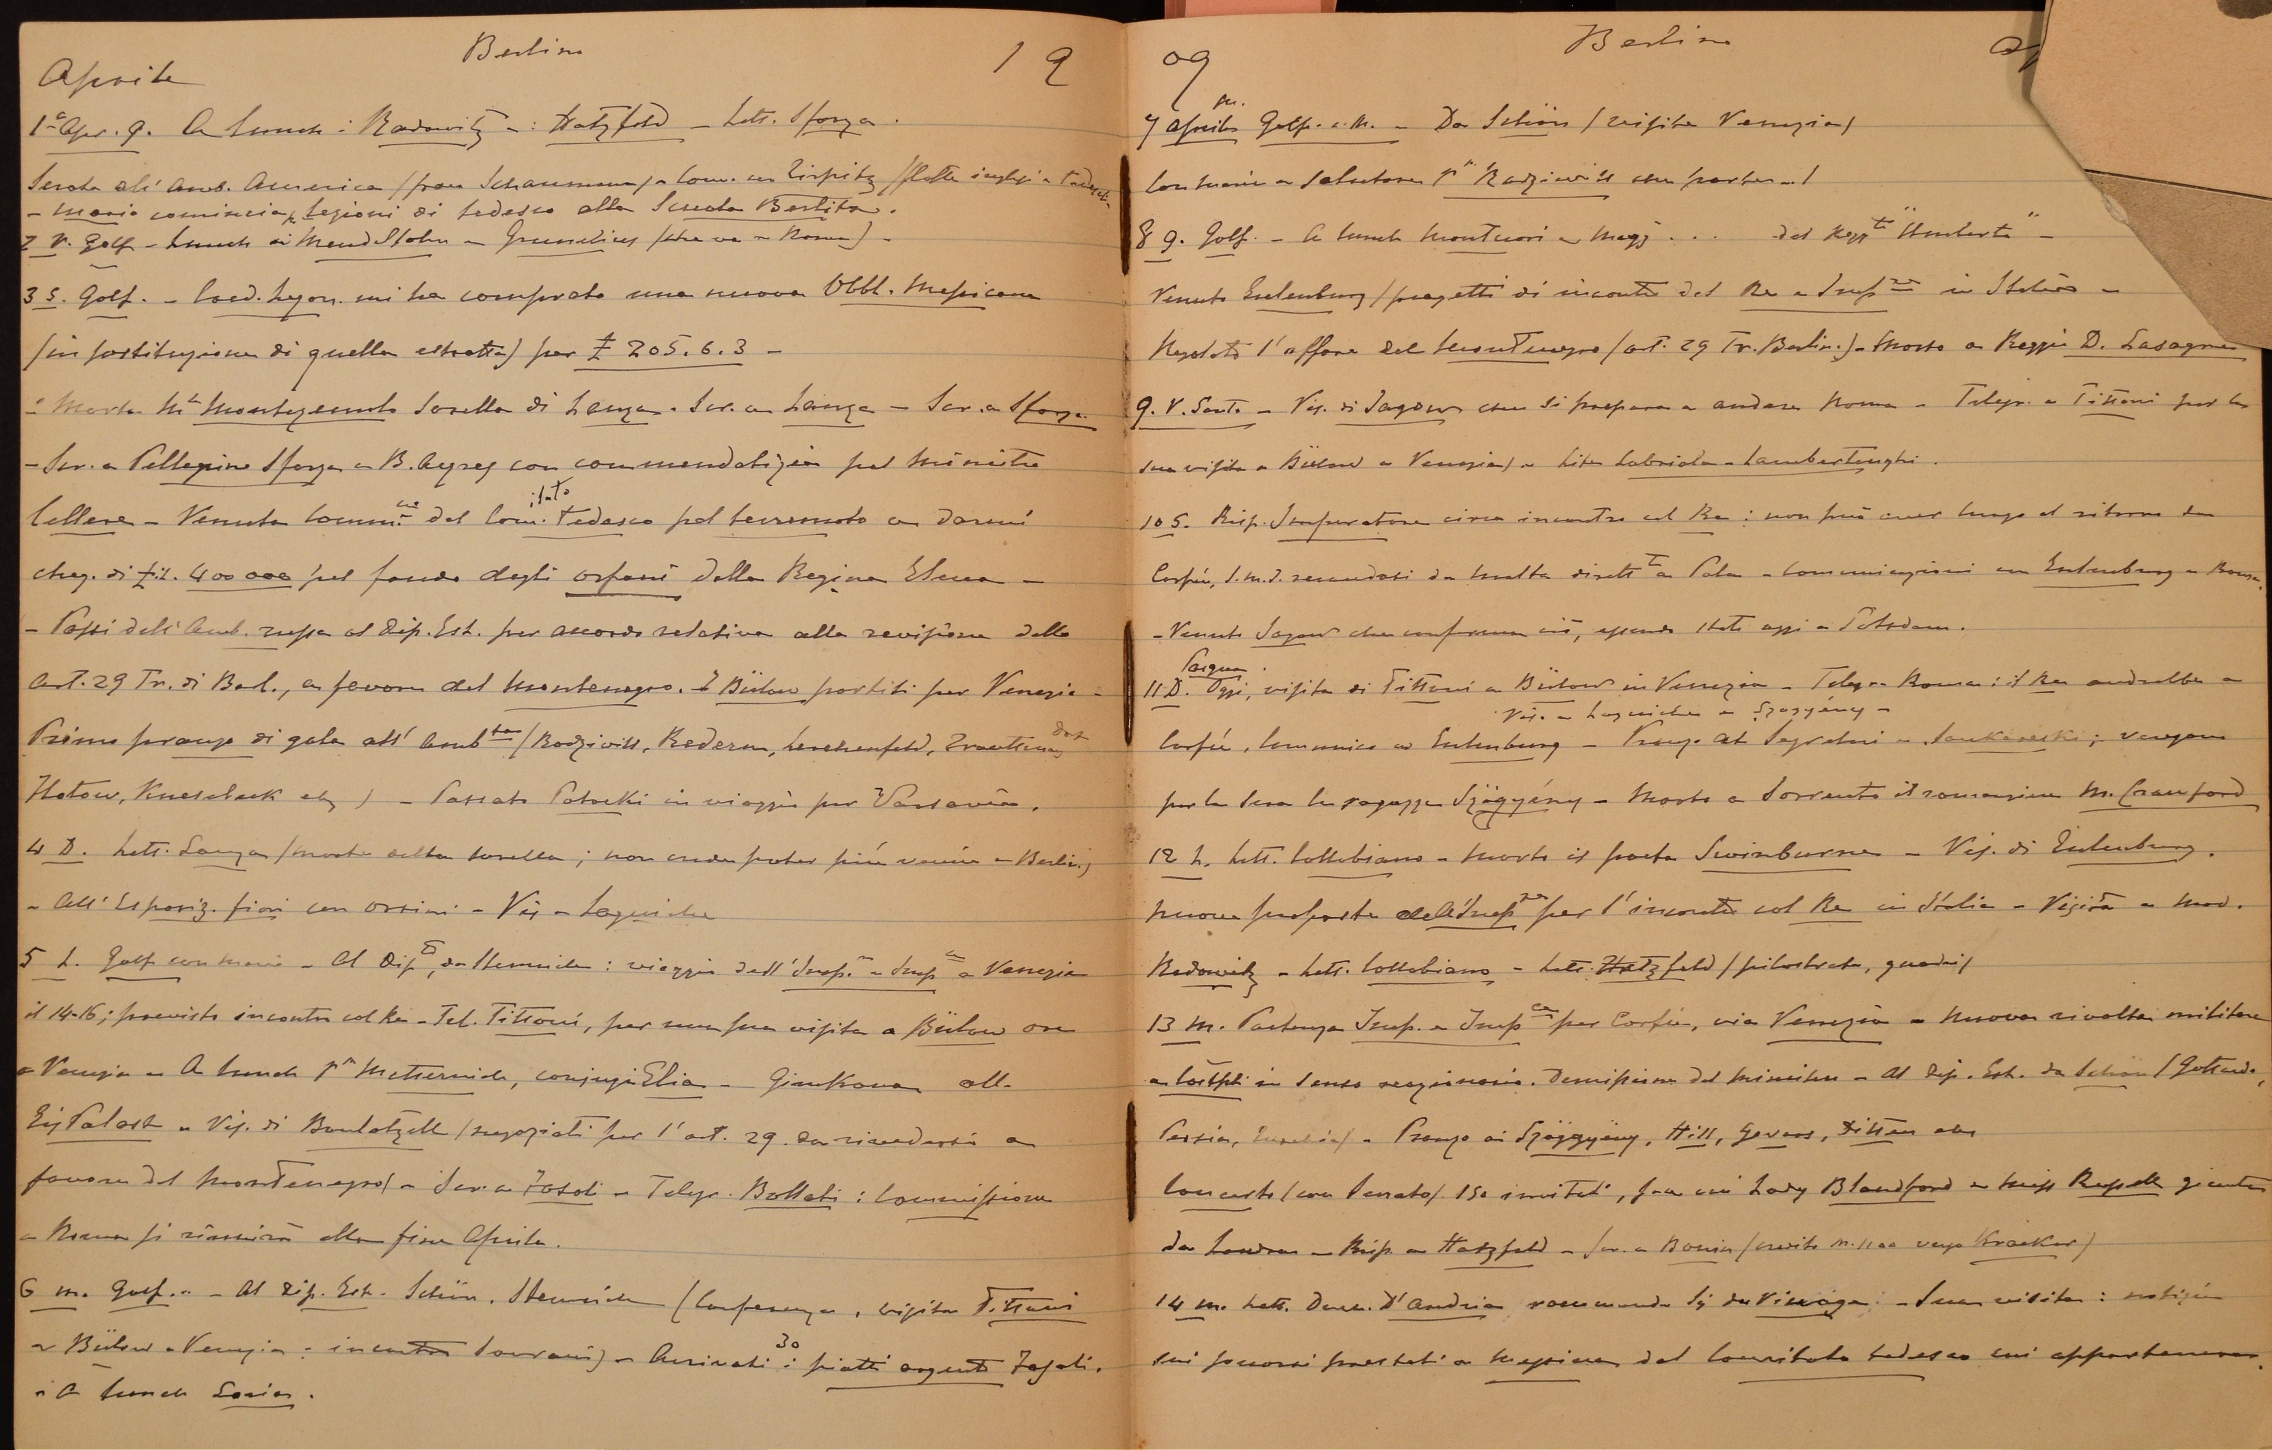 Berlino
Aprile
19
1° Apr. g. A lunch: Radowitz -: Hatzfeld - Lett. Sforza.
Serata all' Amb. America (frau Schaumann) - Com. von Tirpitz (flotte inglese e tedesca)
- Maria comincia lezioni di tedesco alla Scuola Berlitz.
2 V. Golf - Lunch ai Mendelsohn - (che va a Roma) -
3 S. Golf. - Cred. Lyon. mi ha comprato una nuova Obbl. Messicana
(in sostituzione di quella estratta) per £ 205.6.3 -
- Morta Mª sorella di Lanza. Scr. a Lanza - Scr. a Sforza.
- Scr. a Pellegrino Sforza a B. Ayres con commendatizia pel Ministro
Cellere - Venuta Comm.ne del Comitato Tedesco pel terremoto a darmi
cheq. di £it. 400 000 pel fondo degli orfani della Regina Elena -
- Passi dell' Amb. russa al Dip. Est. per accordo relativo alla revisione dello
Art. 29 Tr. di Berl., a favore del Montenegro. I Bülow partiti per Venezia -
Primo pranzo di gala all' Amb.ta (Radziwill, Redern, Lerchenfeld,
Knesebeck etc) - Passato Potocki in viaggio per Varsavia.
4 D. Lett. Lanza (morte della sorella; non crede poter più venire a Berlino)
- All' Esposiz. fiori con Orsini - Vis. a
5 L. Golf con Maria - Al Dip.to, da Stemrich: viaggio dell' Imp.re e Imp.ce a Venezia
il 14-16; previsto incontro col Re - Tel. Tittoni, per una sua visita a Bülow ora
a Venezia - A lunch Pª Metternich, coniugi Elia - Gimkana all-
Eis Palast - Vis. di Boulatzell (negoziati per l' art. 29 da rivedersi a
favore del Montenegro) - Scr. a Fasoli - Telegr. Bollati: Commissione
a Roma si riunirà alla fine Aprile.
6 M. Golf. - Al Dip. Est. Schön, Stemrich (Conferenza, visita Tittoni
a Bülow a Venezia: incontro Sovrani) - Arrivati: 30 piatti argento Fasoli.
- A lunch
Berlino
09
7 Aprile M. Golf. a. m. - Da Schön (visita Venezia)
Con Maria a salutare Pª Radziwill che parte -
8 g. Golf. - A lunch Montuori e Magg. . . . del Regg.to "Umberto" -
Venuto Eulenburg (progetti di incontro del Re e Imp.re in Italia -
Regolato l' affare del Montenegro (art. 29 Tr. Berlino) - Morto a Reggio D. Lasagni
9. V. Santo - Vis. di Jagow che si prepara a andare Roma - Telegr. a Tittoni per la
sua visita a Bülow a Venezia) - Lite Labriola - Lambertenghi.
10 S. Risp. Imperatore circa incontro col Re: non può aver luogo al ritorno da
Corfù, S.M.I. recandosi da Malta dirett.te a Pola - Comunicazioni a Eulenburg e Roma.
- Venuto Jagow che conferma ciò, essendo stato oggi a Potsdam.
11 D. Pasqua. Oggi, visita di Tittoni a Bülow in Venezia - Teleg. a Roma: il Re andrebbe a
Vis. a e Szögyény -
Corfù. Comunico a Eulenburg - Pranzo dai Segretari - ; vengono
per la sera le ragazze Szögyény - Morto a Sorrento il romanziere M. Crawford
12 L. Lett. Collobiano - Morto il poeta Swinburne - Vis. di Eulenburg.
Nuove proposte dell' Imp.re per l' incontro col Re in Italia - Visita a Mad.
Radowitz - Lett. Collobiano - Lett. Hatzfeld (pilastrata, quadri)
13 M. Partenza Imp. e Imp.ce per Corfù, via Venezia - Nuova rivolta militare
a Cospoli in senso reazionario. Demissione del Ministero - Al Dip. Est. da Schön (Gottardo,
Persia, ) - Pranzo ai Szögyény, Hill, Gevers, Ditten etc
Concerto (con Serrato). 150 invitati, fra cui Lady Blandford e Miss Russell giunte
da Londra - Risp. a Hatzfeld - Scr. a Bonin (credito M. 1100 verso Kracker)
14 M. Lett. Duca D' Andria raccomanda Sig. de - Sua visita: notizie
sui soccorsi prestati a Messina dal Comitato tedesco cui apparteneva.